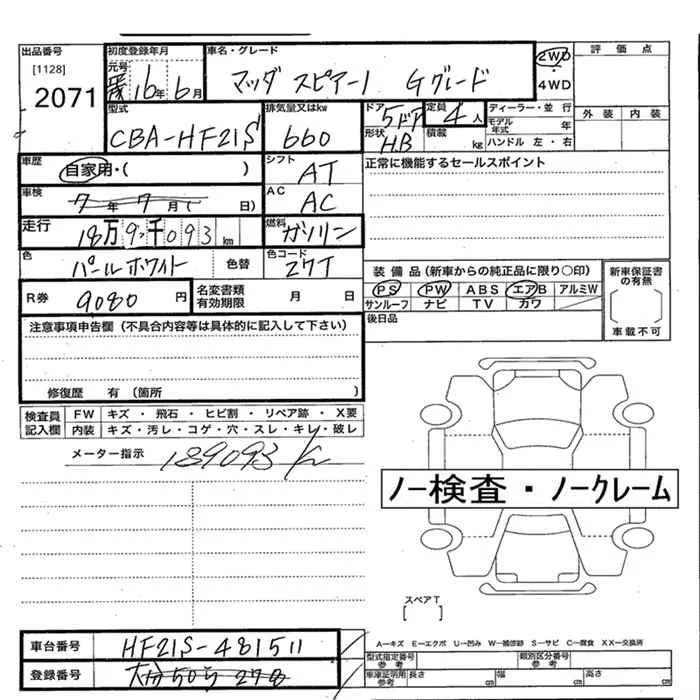 出品番号 初度登録年月 車名・グレード 評価点
[1128] 元号 2WD
2071 16年 6月 マッダ スピアーノ Gグレード ・4WD
型式 排気量又はkw ドア 5ドア 定員 4人 ディーラー・並行 外装 内装
CBA-HF21S 660 形状 HB 積載 kg モデル年式 年
ハンドル 左・右
車歴 自家用・( ) シフト AT 正常に機能するセールスポイント
車検 7年 7月( 日) AC AC
走行 18万9千093km 燃料 ガソリン
色 パールホワイト 色替 色コード 27T
装備品(新車からの純正品に限り○印) 新車保証書の有無
R券 9080円 名変書類有効期限 月 日 PS PW ABS エアB アルミW
サンルーフ ナビ TV カワ 車載不可
注意事項申告欄(不具合内容等は具体的に記入して下さい) 後日品
修復歴 有(箇所 )
検査員 FW キズ・飛石・ヒビ割・リペア跡・X要
記入欄 内装 キズ・汚レ・コゲ・穴・スレ・キレ・破レ
メーター指示 189093 K
ノー検査・ノークレーム
スペアT
[ ]
車台番号 HF21S-481511 A-キズ E-エクボ U-凹み W-補修跡 S-サビ C-腐食 XX-交換済
型式指定番号 参考 類別区分番号 参考
登録番号 50 278 車庫証明用 参考 長さ cm 幅 cm 高さ cm